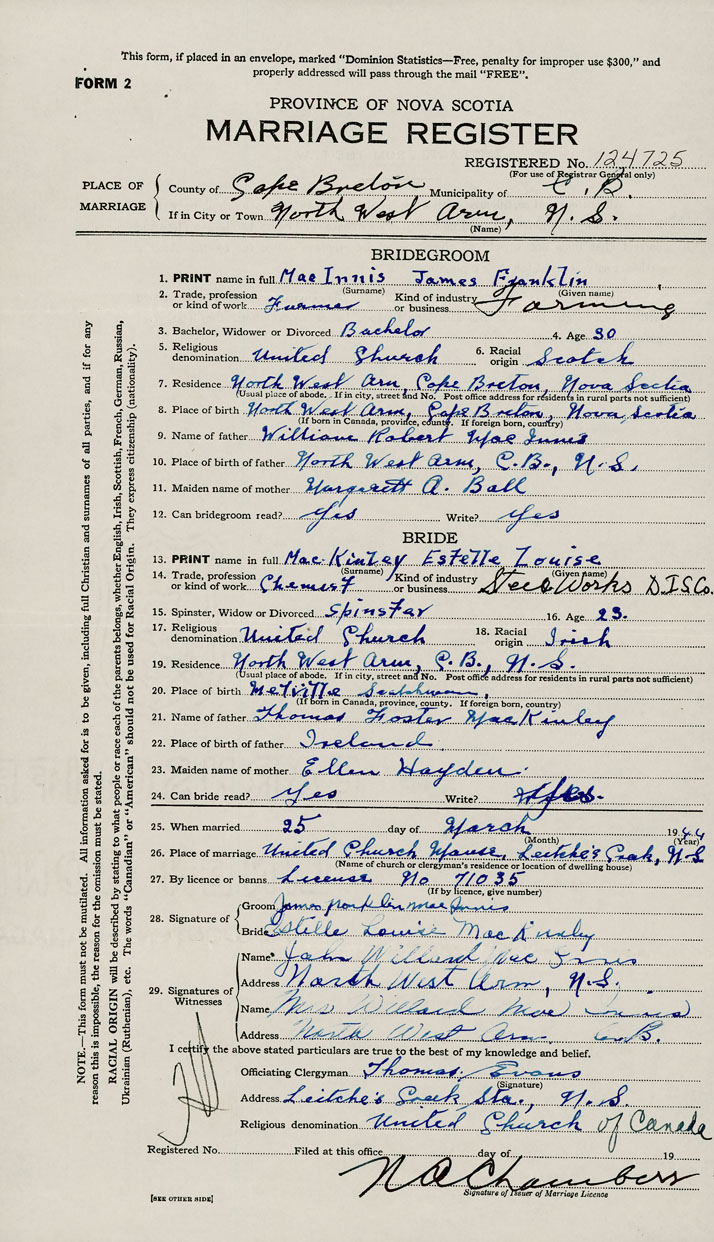 This form, if placed in an envelope, marked "Dominion Statistics—Free, penalty for improper use $300," and
properly addressed will pass through the mail "FREE".
FORM 2
PROVINCE OF NOVA SCOTIA
MARRIAGE REGISTER
REGISTERED No. 124725
(For use of Registrar General only)
PLACE OF MARRIAGE
County of Cape Breton Municipality of C. B.
If in City or Town North West Arm, N. S.
(Name)
BRIDEGROOM
1. PRINT name in full MacInnis James Franklin
(Surname) (Given name)
2. Trade, profession or kind of work Farmer Kind of industry or business Farming
3. Bachelor, Widower or Divorced Bachelor 4. Age 30
5. Religious denomination United Church 6. Racial origin Scotch
7. Residence North West Arm, Cape Breton, Nova Scotia
(Usual place of abode. If in city, street and No. Post office address for residents in rural parts not sufficient)
8. Place of birth North West Arm, Cape Breton, Nova Scotia
(If born in Canada, province, county. If foreign born, country)
9. Name of father William Robert MacInnis
10. Place of birth of father North West Arm, C.B., N.S.
11. Maiden name of mother Margarett A. Ball
12. Can bridegroom read? Yes Write? Yes
BRIDE
13. PRINT name in full MacKinley Estelle Louise
(Surname) (Given name)
14. Trade, profession or kind of work Chemist Kind of industry or business Steel Works D.I.S.Co.
15. Spinster, Widow or Divorced Spinster 16. Age 23.
17. Religious denomination United Church 18. Racial origin Irish
19. Residence North West Arm, C.B., N.S.
(Usual place of abode. If in city, street and No. Post office address for residents in rural parts not sufficient)
20. Place of birth Melville Saskatchewan,
(If born in Canada, province, county. If foreign born, country)
21. Name of father Thomas Foster MacKinley
22. Place of birth of father Ireland.
23. Maiden name of mother Ellen Hayden.
24. Can bride read? Yes Write? Yes.
25. When married 25 day of March 1944
(Month) (Year)
26. Place of marriage United Church Manse, Leitche's Creek, N.S
(Name of church or clergyman's residence or location of dwelling house)
27. By licence or banns License No 71035
(If by licence, give number)
28. Signature of
Groom James Franklin MacInnis
Bride Estelle Louise MacKinley
29. Signatures of Witnesses
Name John Willard MacInnis
Address North West Arm, N.S.
Name Mrs Willard MacInnis
Address North West Arm C.B.
I certify the above stated particulars are true to the best of my knowledge and belief.
Officiating Clergyman Thomas Evans
(Signature)
Address Leitche's Creek Sta., N.S
Religious denomination United Church of Canada
Registered No. Filed at this office day of 19
N A Chambers
Signature of Issuer of Marriage Licence
[SEE OTHER SIDE]
NOTE.—This form must not be mutilated. All information asked for is to be given, including full Christian and surnames of all parties, and if for any
reason this is impossible, the reason for the omission must be stated.
RACIAL ORIGIN will be described by stating to what people or race each of the parents belongs, whether English, Irish, Scottish, French, German, Russian,
Ukrainian (Ruthenian), etc. The words "Canadian" or "American" should not be used for Racial Origin. They express citizenship (nationality).